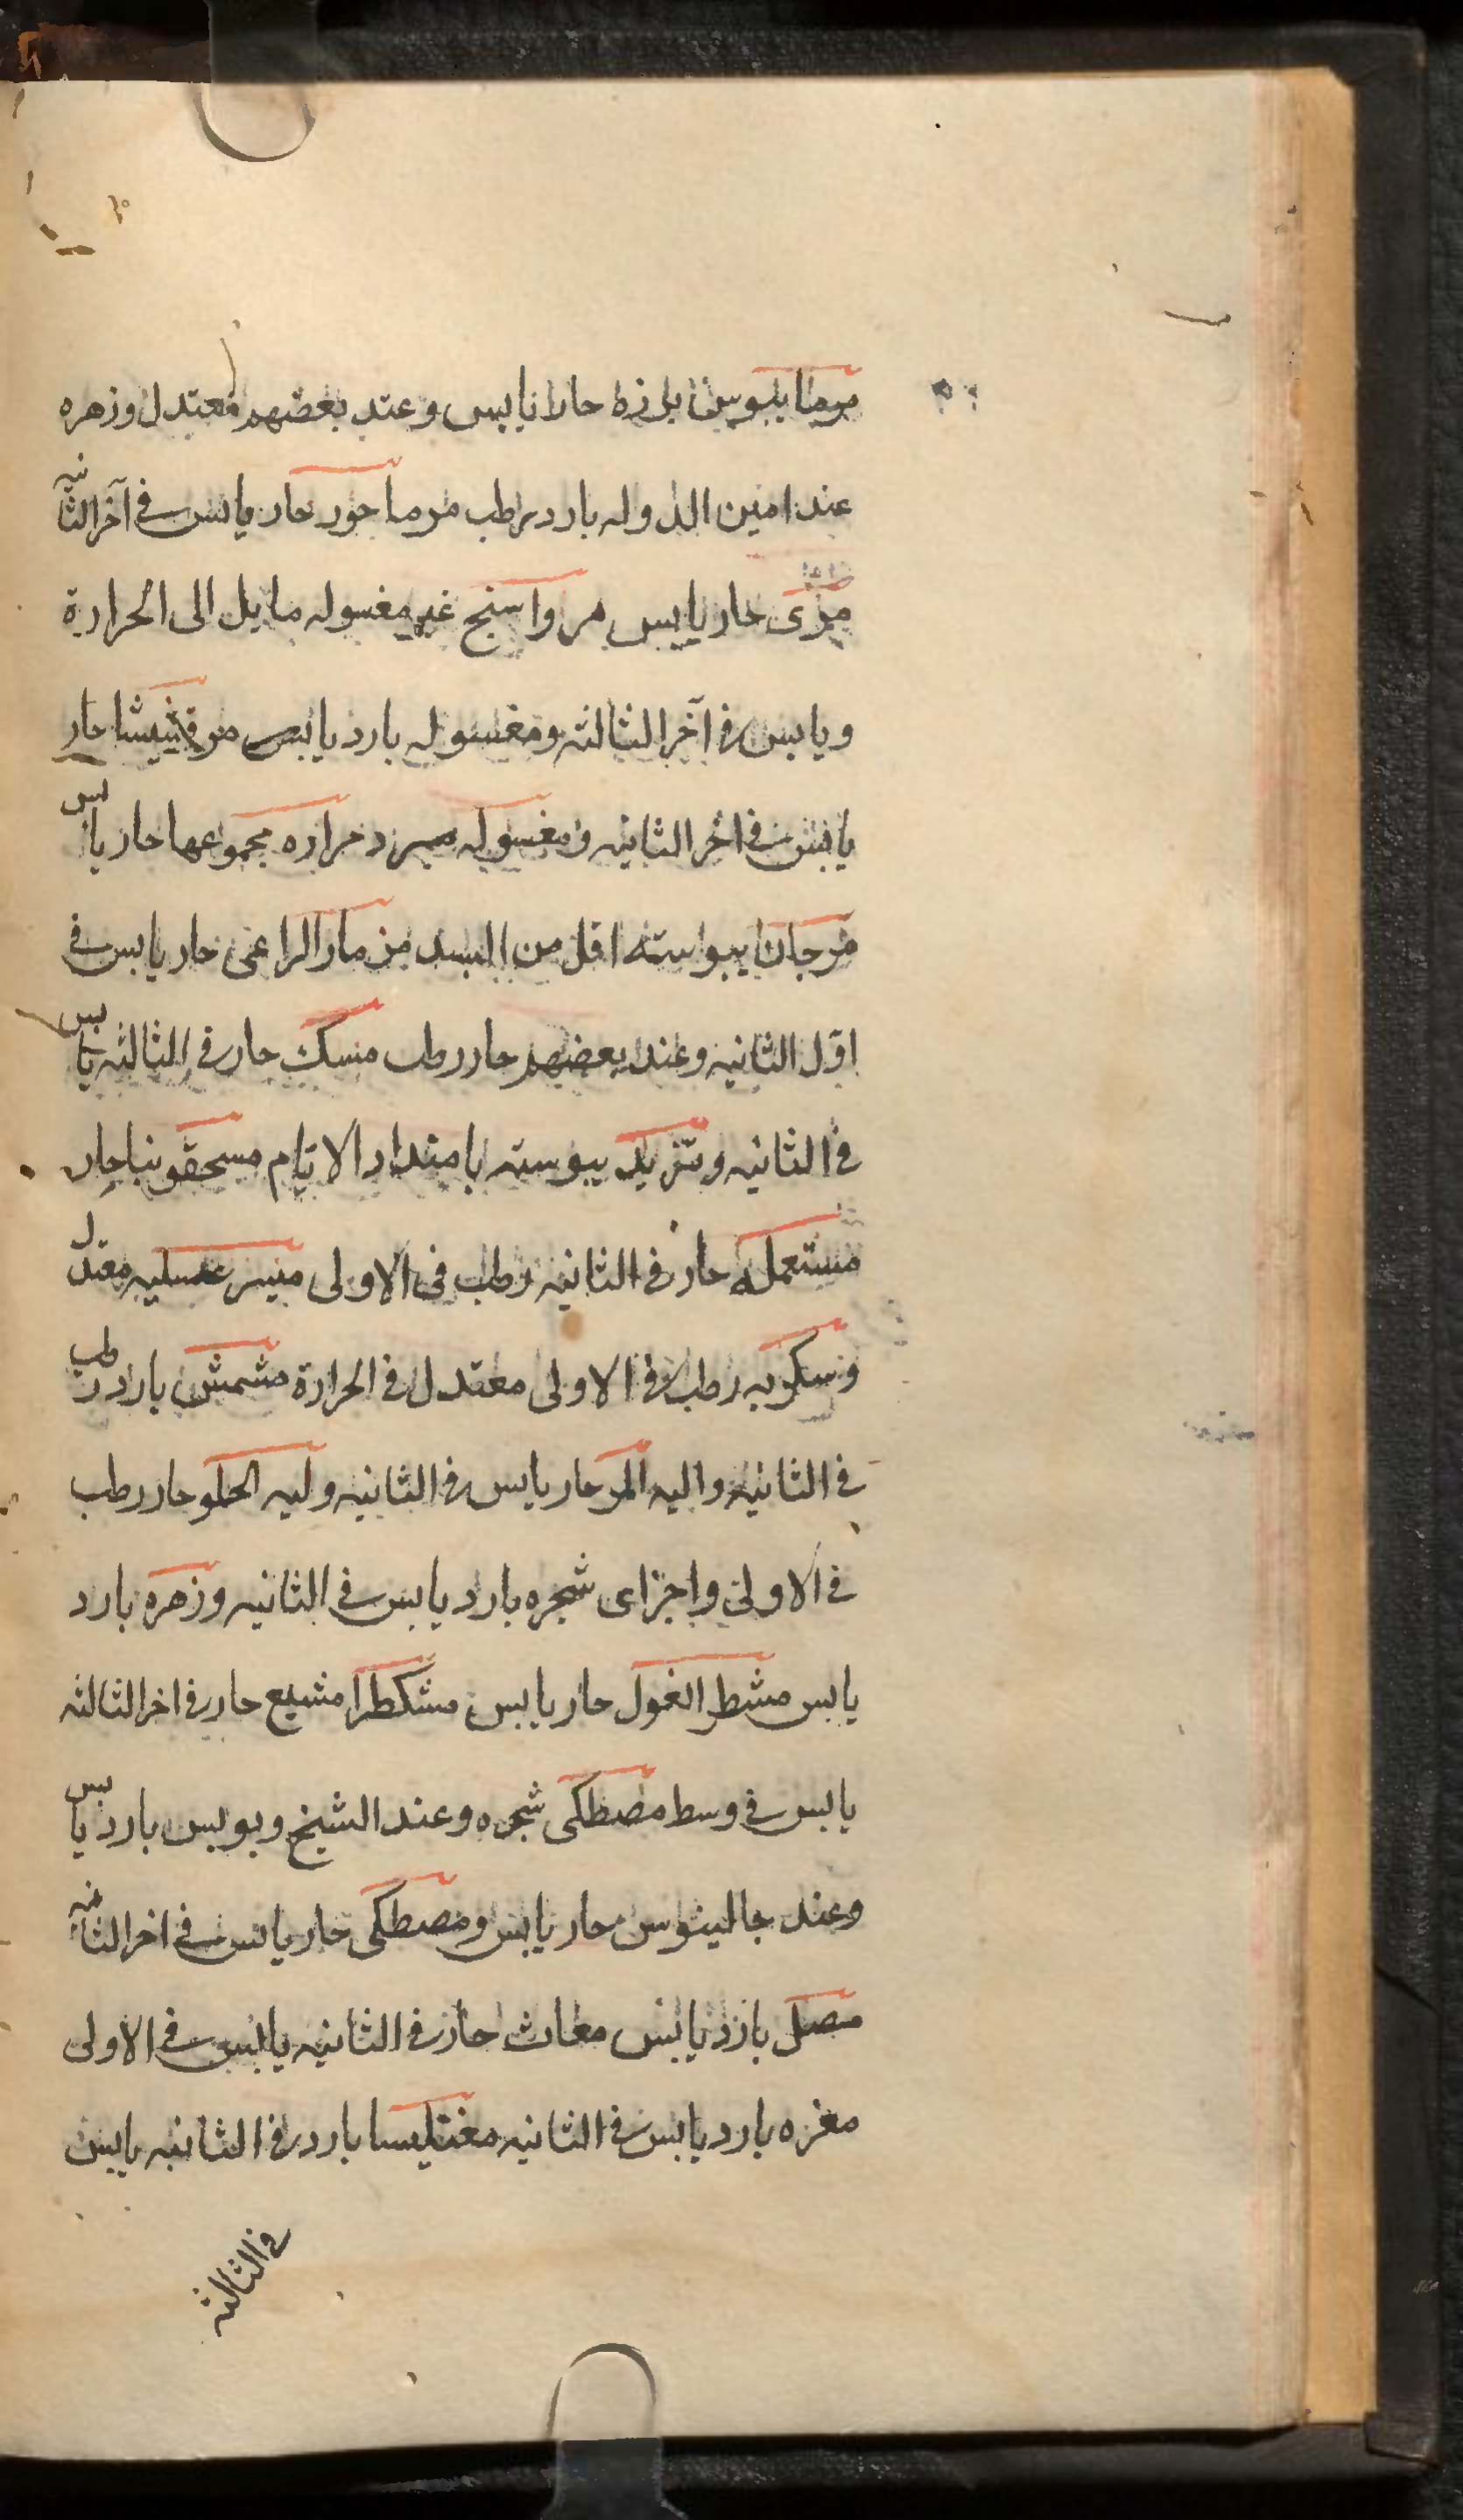 برزه حار يابس وعند بعضهم معتدل وزهره
عند امين الدوله بارد رطب مرماحور حار يابس في آخر الثانيه
مرّى حار يابس مرداسنج غير مغسوله مايل الى الحرارة
ويابس في آخر الثالثه ومغسوله بارد يابس مرقشيشا حار
يابس في اخر الثانيه ومغسوله حراره مجموعها حار يابس
مرجان يبوسته اقل من البسد مزمار الراعى حار يابس في
اوّل الثانيه وعند بعضهم حار رطب مسك حار في الثالثه يابس
في الثانيه وتزيد يبوسته بامتداد الايّام مسحقونيا حار
مستعمله حار في الثانيه رطب فى الاولى عسليه معتدل
وسكريه رطب في الاولى معتدل في الحرارة مشمش بارد رطب
في الثانيه واليه المر حار يابس في الثانيه وليه الحلو حار رطب
في الاولى واجزاى شجره بارد يابس في الثانيه وزهره بارد
يابس مشط الغول حار يابس مشكطرا مشيع حار في اخر الثالثه
يابس في وسط مصطكى شجره وعند الشيخ وبولس بارد يابس
وعند جالينوس حار يابس ومصطكى حار يابس في اخر الثانيه
مصل بارد يابس مغاث حار في الثانيه يابس في الاولى
مغره بارد يابس في الثانيه مغنليسا بارد في الثانيه يابس
في الثالثه